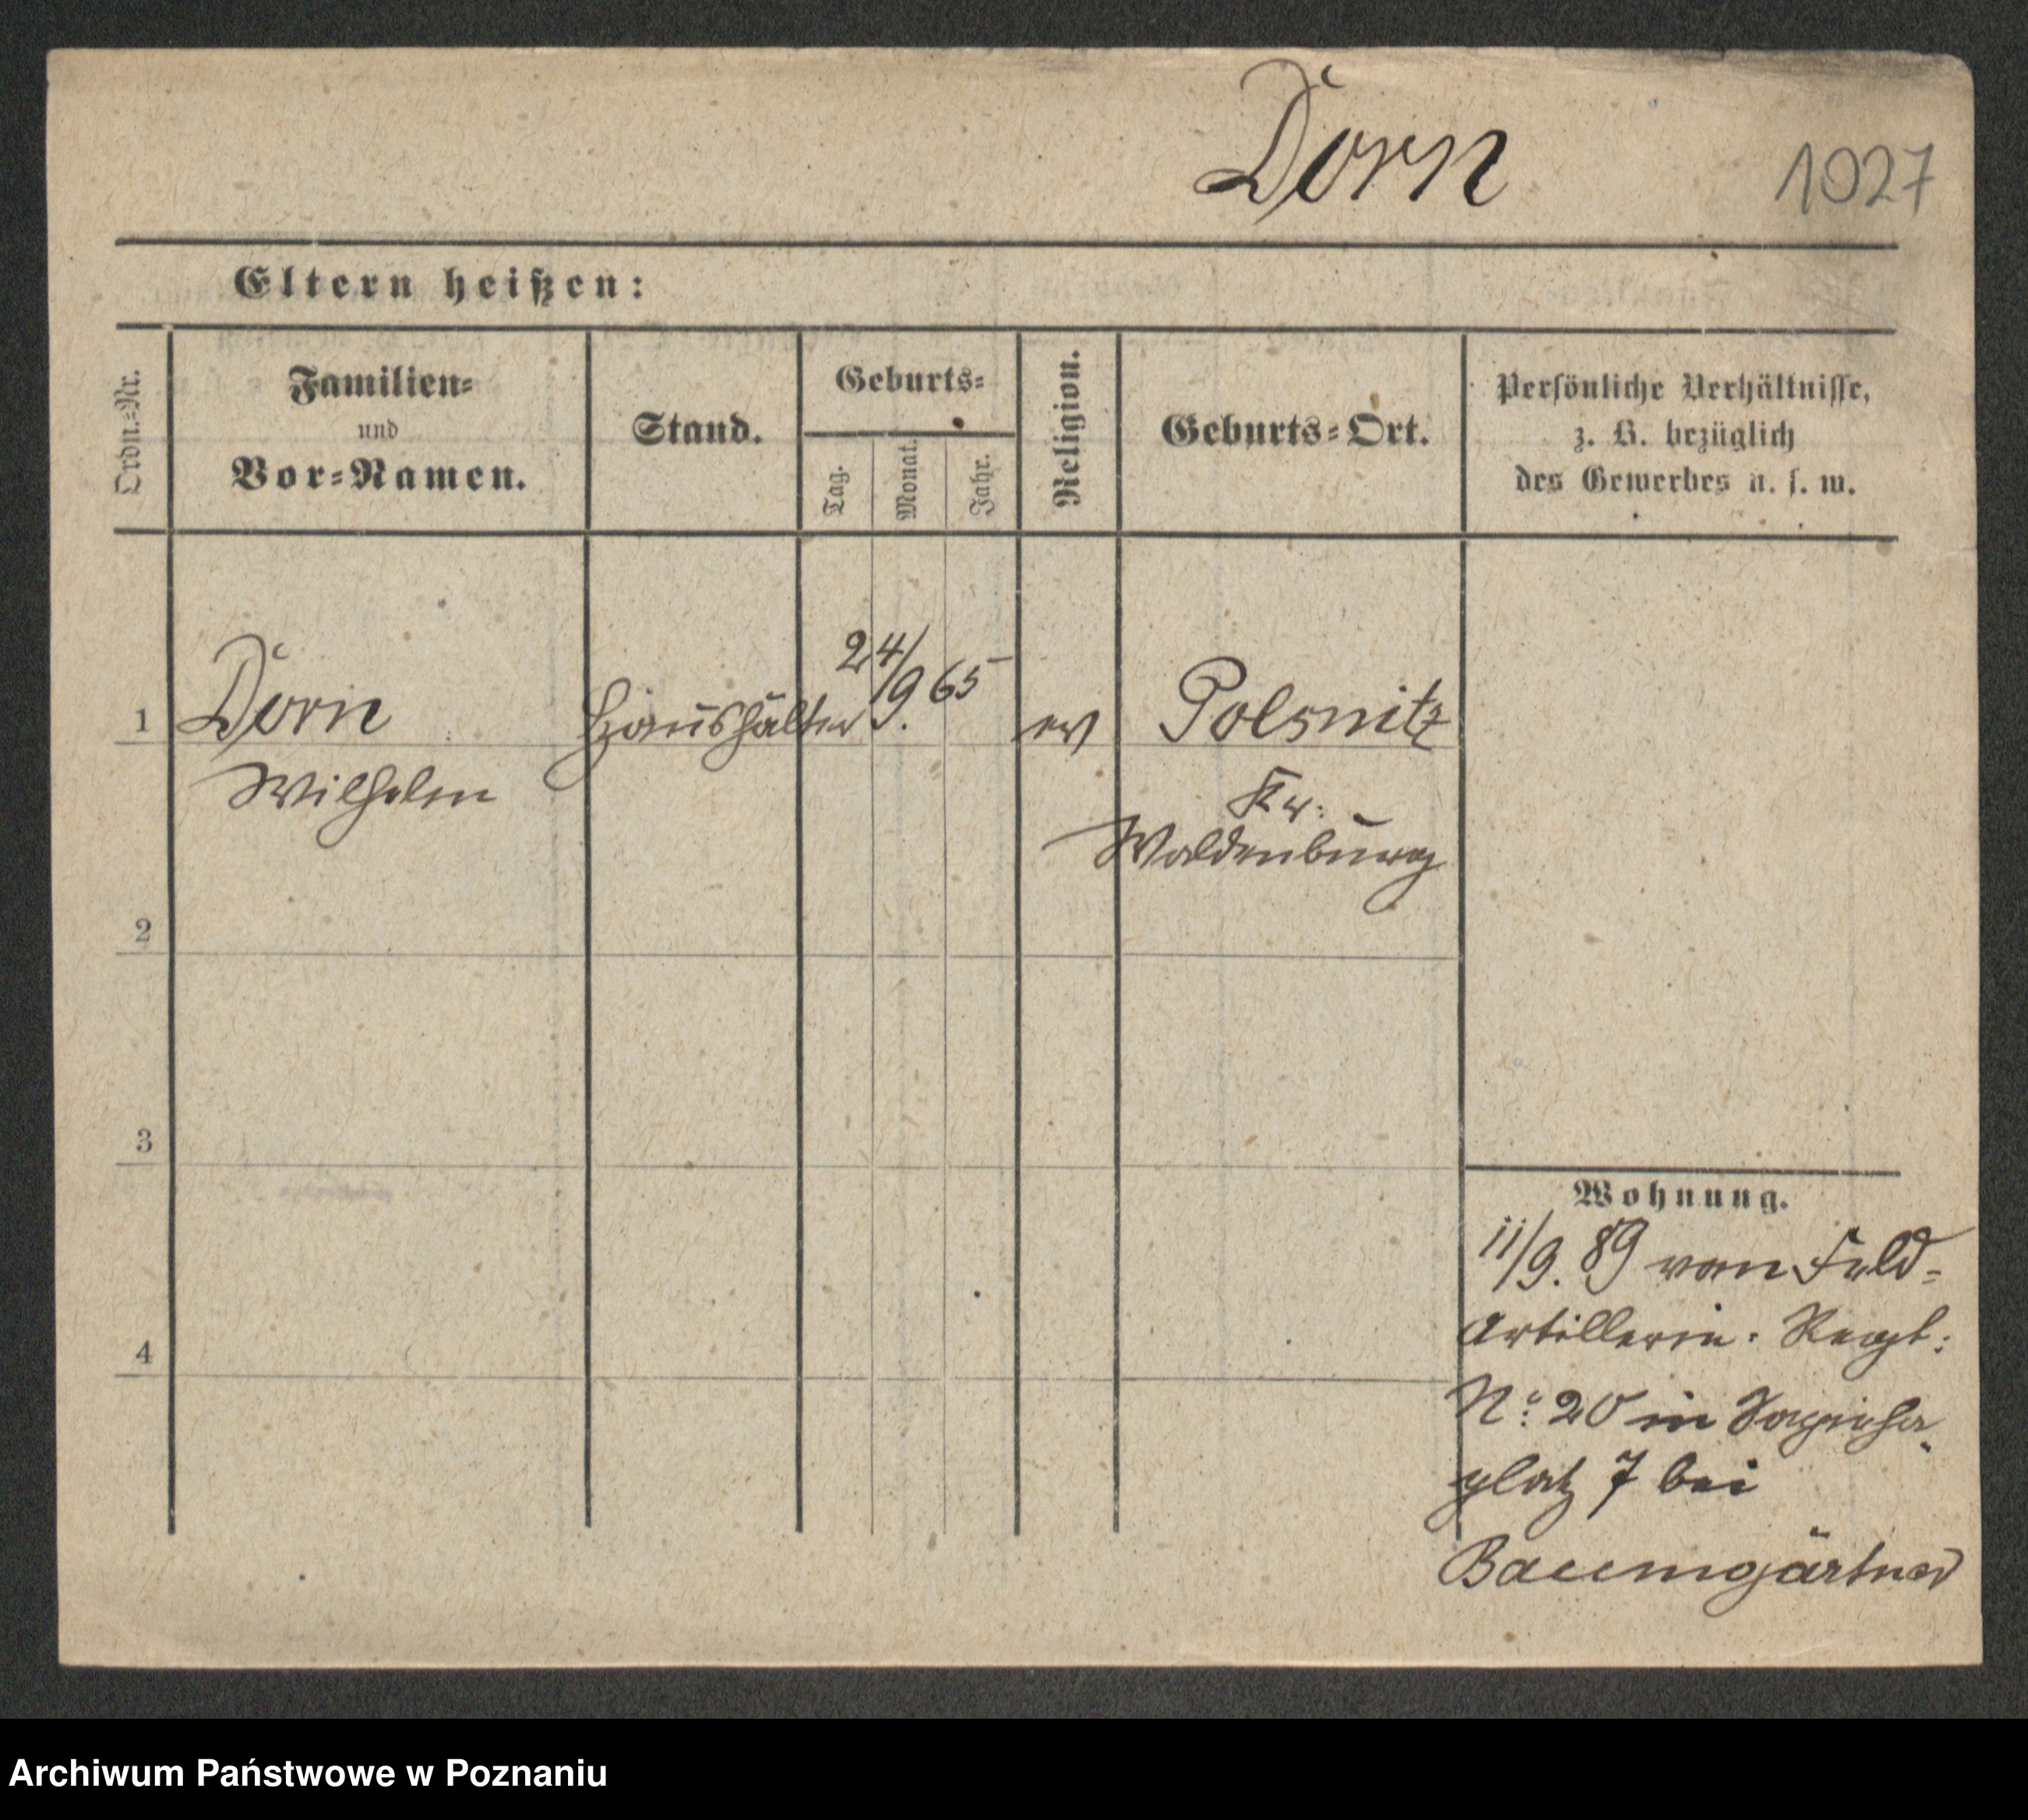 Dorn 1027
Eltern heißen:
Ordn.-Nr.
Familien-
und
Vor-Namen.
Stand.
Geburts-
Tag.
Monat.
Jahr.
Religion.
Geburts-Ort.
Persönliche Verhältnisse,
z. B. bezüglich
des Gewerbes u. s. w.
1 Dorn Haushälter 24/9. 65 ev Polsnitz
Wilhelm Kr.
Waldenburg
2
3
4
Wohnung.
11/9. 89 vom Feld-
Artillerie. Regt:
No: 20 in Sapieha
platz 7 bei
Baumgärtner
Archiwum Państwowe w Poznaniu